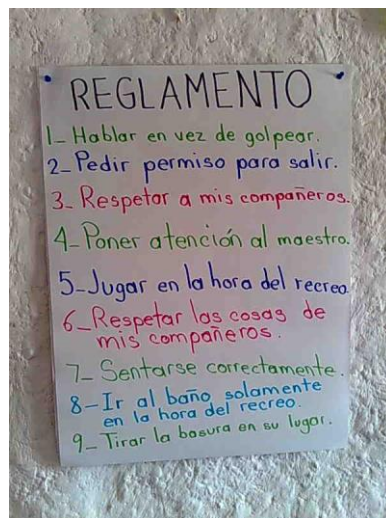 REGLAMENTO
1_ Hablar en vez de golpear.
2_ Pedir permiso para salir.
3_ Respetar a mis compañeros.
4_ Poner atención al maestro.
5_ Jugar en la hora del recreo.
6_ Respetar las cosas de
mis compañeros.
7_ Sentarse correctamente.
8_ Ir al baño solamente
en la hora del recreo.
9_ Tirar la basura en su lugar.